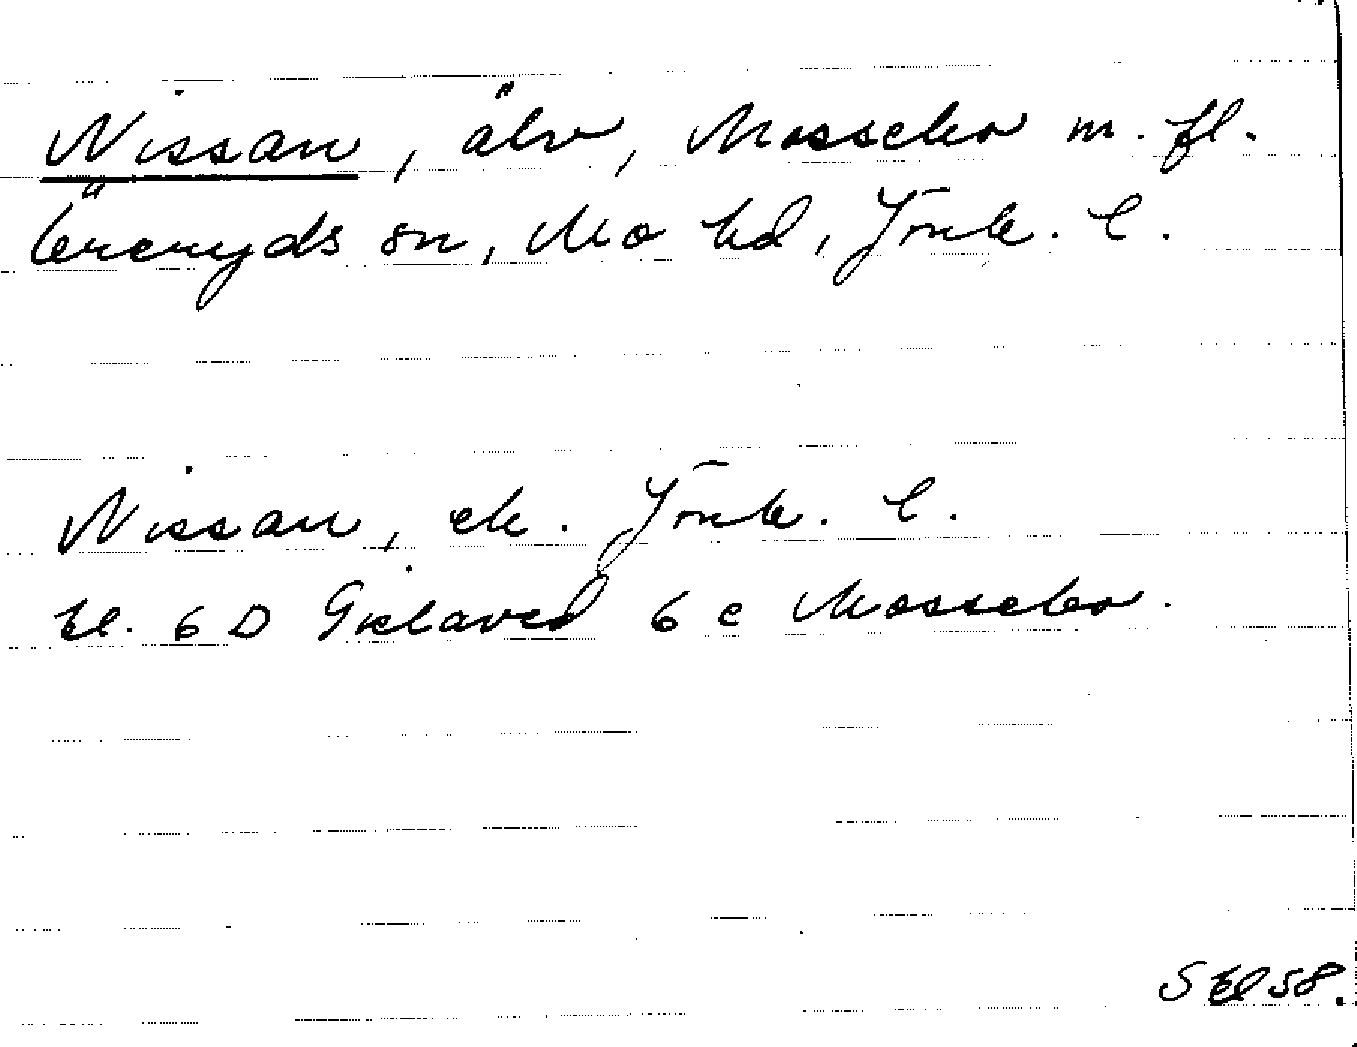 Nissan, älv, Mossebo m. fl.
sn, Mo hd, Jönk. l.
Nissan, ek. Jönk. l.
bl. 6 D Gislaved 6 c Mossebo.
58.